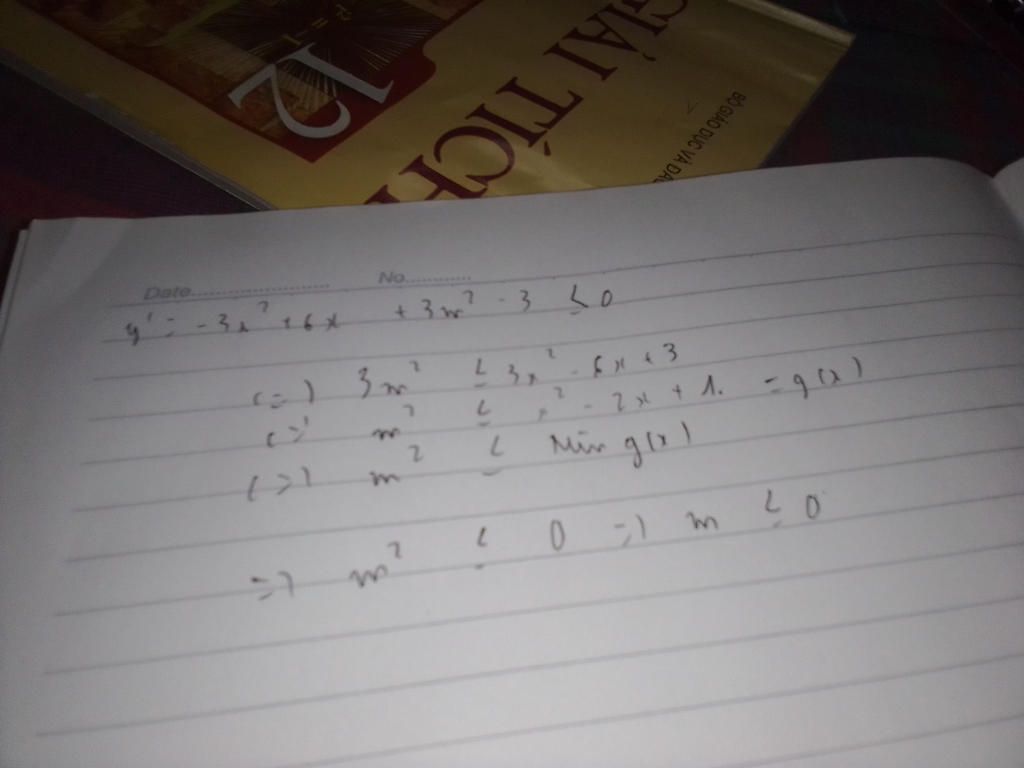 12
GIẢI TÍCH
BỘ GIÁO DỤC VÀ ĐÀO
Date................ No............
y' = -3x² + 6x + 3m² - 3 ≤ 0
(=) 3m² ≤ 3x² - 6x + 3
(=) m² ≤ x² - 2x + 1. = g(x)
(=) m² ≤ Min g(x)
=> m² ≤ 0 => m ≤ 0